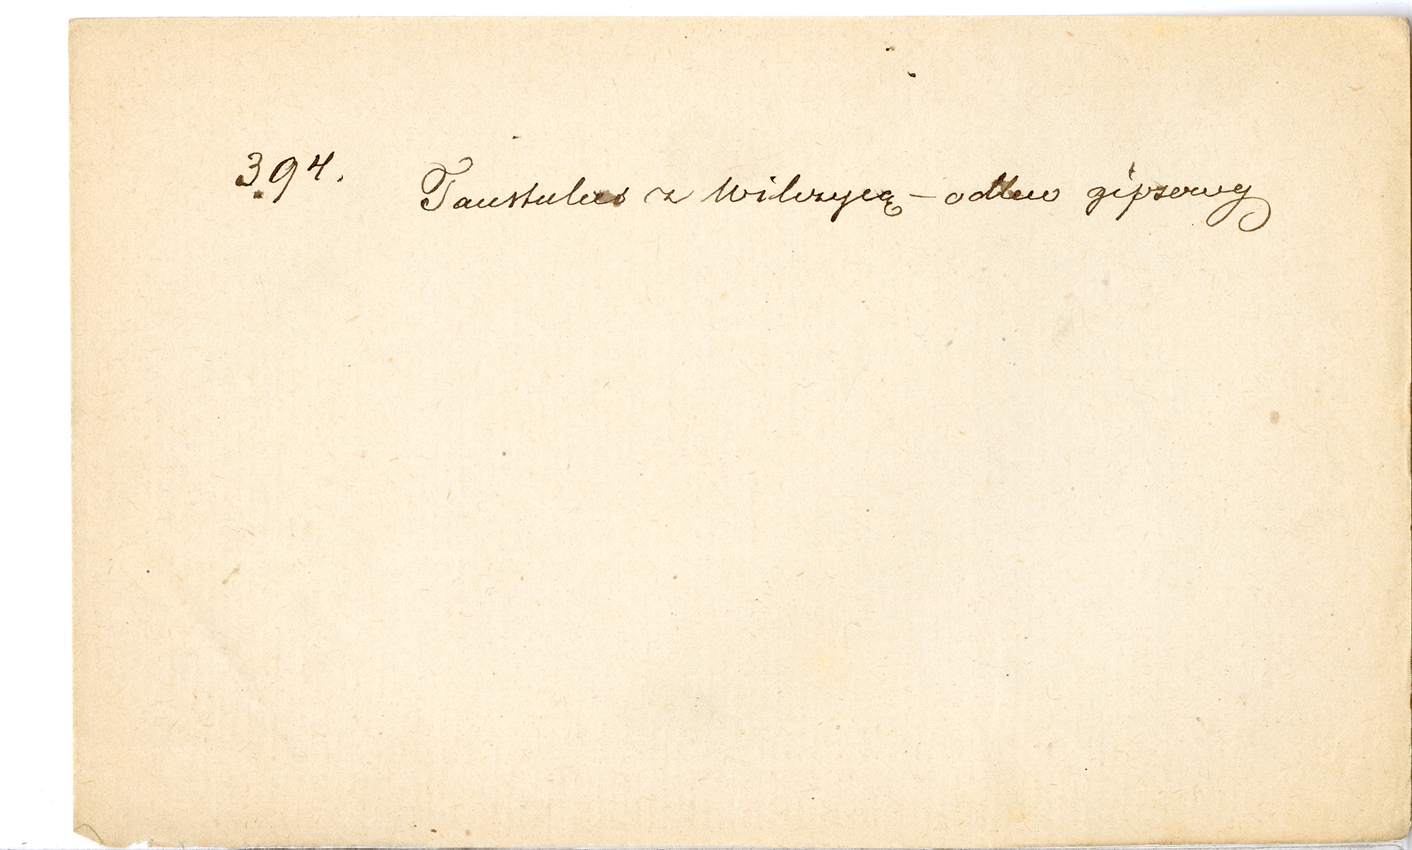 394. Faustulus z Wilczycą – odlew gipsowy